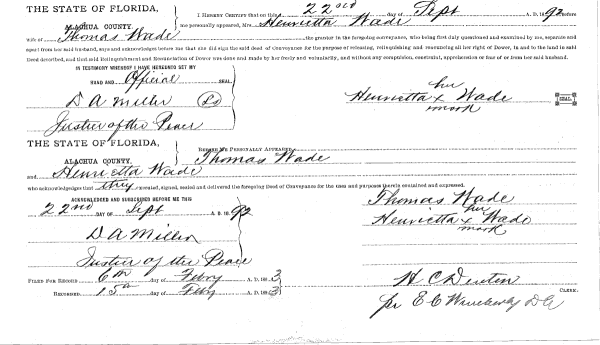 THE STATE OF FLORIDA,
ALACHUA COUNTY.
I HEREBY CERTIFY that on this 22nd day of Sept A. D. 1892 before
me personally appeared, Mrs. Henrietta Wade
wife of Thomas Wade the grantor in the foregoing conveyance, who being first duly questioned and examined by me, separate and
apart from her said husband, says and acknowledges before me that she did sign the said deed of Conveyance for the purpose of releasing, relinquishing and renouncing all her right of Dower, in and to the land in said
Deed described, and that said Relinquishment and Renunciation of Dower was done and made by her freely and voluntarily, and without any compulsion, constraint, apprehension or fear of or from her said husband.
IN TESTIMONY WHEREOF I HAVE HEREUNTO SET MY
HAND AND Official SEAL
D A Miller
Justice of the Peace
her
Henrietta x Wade SEAL
mark
THE STATE OF FLORIDA,
ALACHUA COUNTY.
BEFORE ME PERSONALLY APPEARED
Thomas Wade
and Henrietta Wade
who acknowledges that they executed, signed, sealed and delivered the foregoing Deed of Conveyance for the uses and purposes therein contained and expressed.
ACKNOWLEDGED AND SUBSCRIBED BEFORE ME THIS
22nd DAY OF Sept A. D. 1892
D A Miller
Justice of the Peace
Thomas Wade
her
Henrietta x Wade
mark
FILED FOR RECORD 6th day of Feby A. D. 1893
RECORDED 15th day of Feby A. D. 1893
H C Denton
CLERK.
per E C